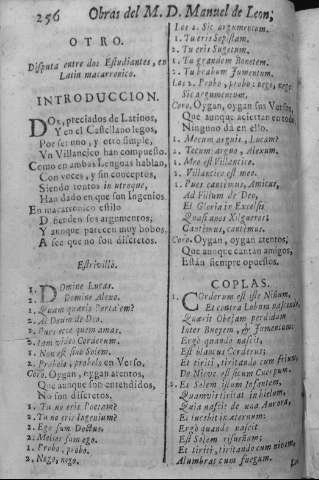 256 Obras del M. D. Manuel de Leon,
OTRO.
Disputa entre dos Estudiantes, en
Latin macarronico.
INTRODUCCION.
DOs, preciados de Latinos,
Y en el Castellano legos,
Por ser uno, y otro simple,
Vn Villancico han compuesto.
Como en ambas Lenguas hablan,
Con voces, y sin conceptos,
Siendo tontos in utroque,
Han dado en que son Ingenios.
En macarronico estilo
Defienden sus argumentos,
Y aunque parecen muy bobos,
A fee que no son discretos.
Estrivillo.
1. DOmine Lucas.
2. Domine Alexo.
1. Quam quæris
2. Ad Deum de Deo,
1. Pues ecce quem amas.
2. Iam video Corderum.
1. Non est sub Solem.
2. Probolo, probolo en Verso.
Coro. Oygan, oygan atentos,
Que aunque son entendidos,
No son discretos.
1. Tu ne eris Poetam?
2. Tu ne eris Ingenium?
1. Ego sum Doctus,
2. Melior sum ego.
1. Probo, probo,
2. Nego, nego.
Los 2. Sic argumentum.
1. Tu eris Sopistam.
2. Tu eris Sugetum.
1. Tu grandem Bonetem.
2. Tu brabum Jumentum.
Los 2. Probo, probo, nego, nego
Sic argumentum,
Coro. Oygan, oygan sus Versos,
Que aunque aciertan en todo
Ninguno dà en ello.
1. Mecum arguis, Lucam?
2. Tecum arguo, Alexum.
1. Meo est Villancico.
2. Villancico est meo.
1. Pues cantimus, Amicus,
Ad Filium de Deo,
Et Gloria in Excelsis
Quasi unos Xilgueros;
Cantimus, cantimus.
Coro. Oygan, oygan atentos;
Que aunque cantan amigos,
Están siempre opuestos.
COPLAS.
1. COrderum est iste Niñum,
Et contra Lobum nascendo
Quærit Obejam perdidam
Inter Bueyem, & Jumentum:
Ergò quando nascit,
Est blancus Corderus;
Et tiriti, tiritando cum frixus,
De Nieve est sicut Cuerpum.
2. Est Solem istum Infantem,
Quamvis tiritat in hielum,
Quia nascit de una Aurora,
Et lucebit in æternum:
Ergò quando nascit
Est Solem risueñum;
Et tiriti, tiritando cum nievem,
Alumbras cum fuegum.